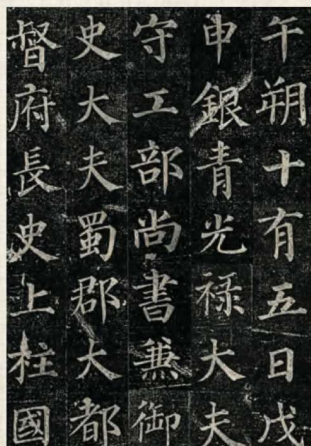 午朔十有五日戊
申銀青光禄大夫
守工部尚書兼御
史大夫蜀郡大都
督府長史上柱國